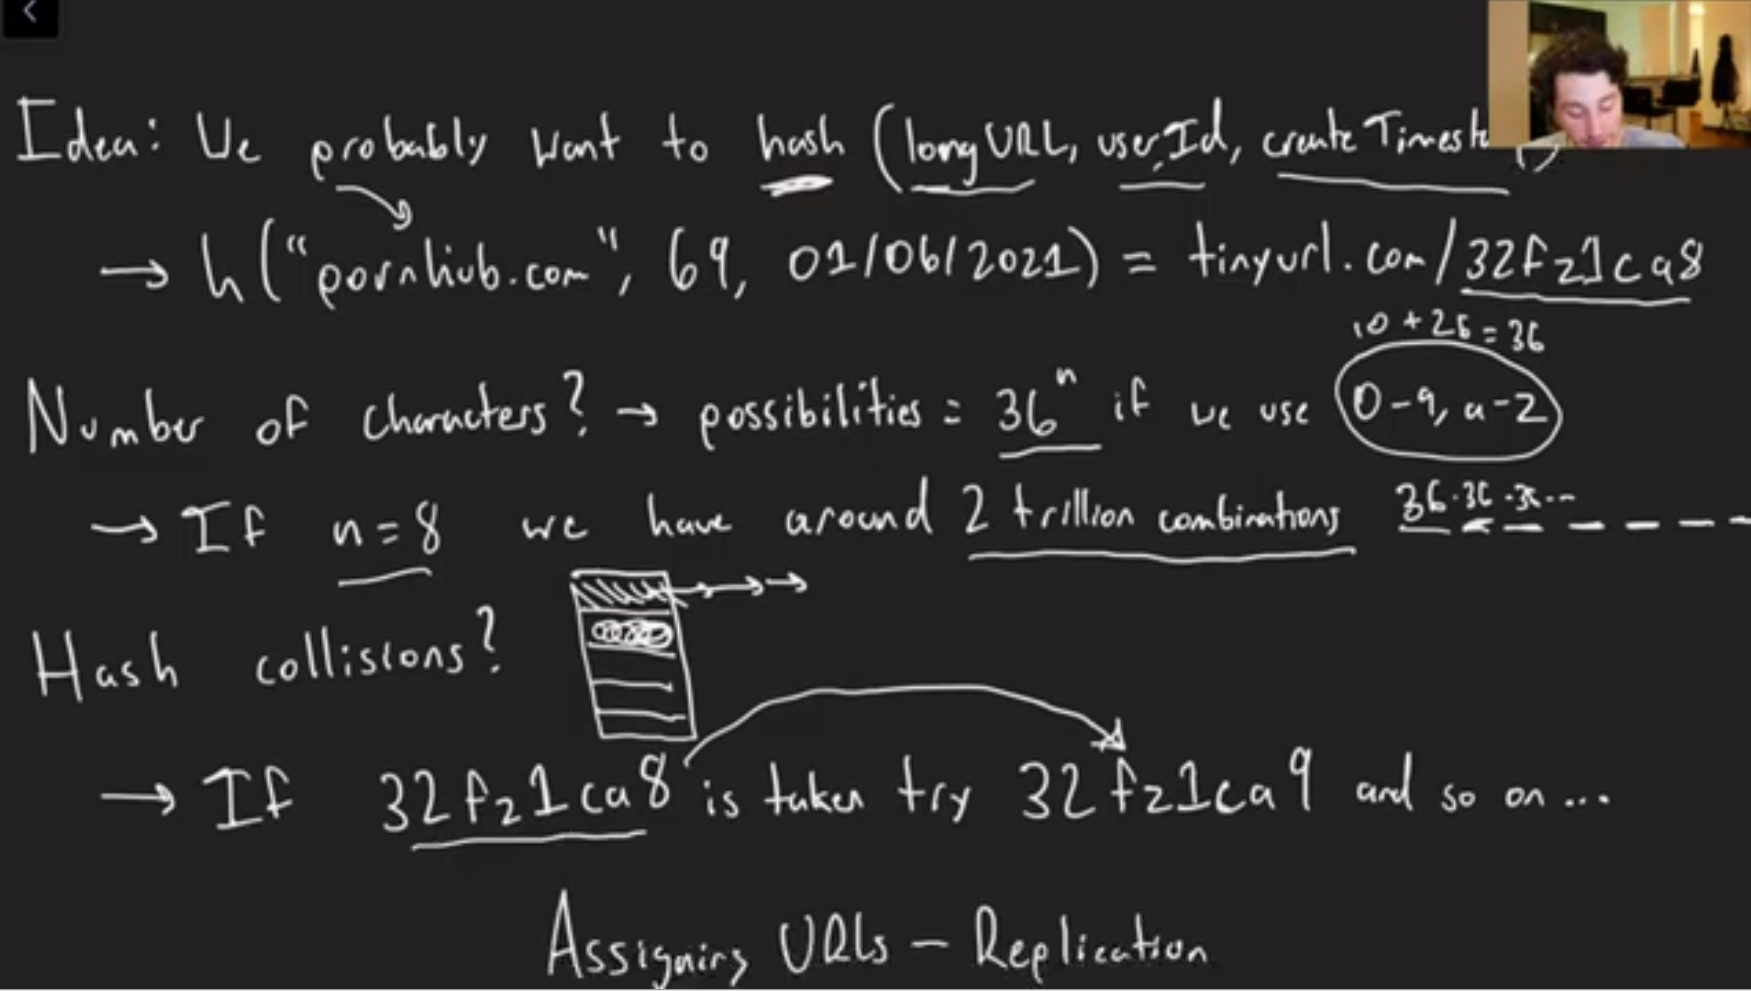 Idea: We probably want to hash (long URL, user Id, create Timest
→ h("pornhub.com", 69, 01/06/2021) = tinyurl.com/32fz1ca8
10 + 26 = 36
Number of characters? → possibilities = 36^n if we use 0-9, a-z
→ If n=8 we have around 2 trillion combinations 36·36·36...
Hash collisions?
→ If 32fz1ca8 is taken try 32fz1ca9 and so on...
Assigning URLs - Replication